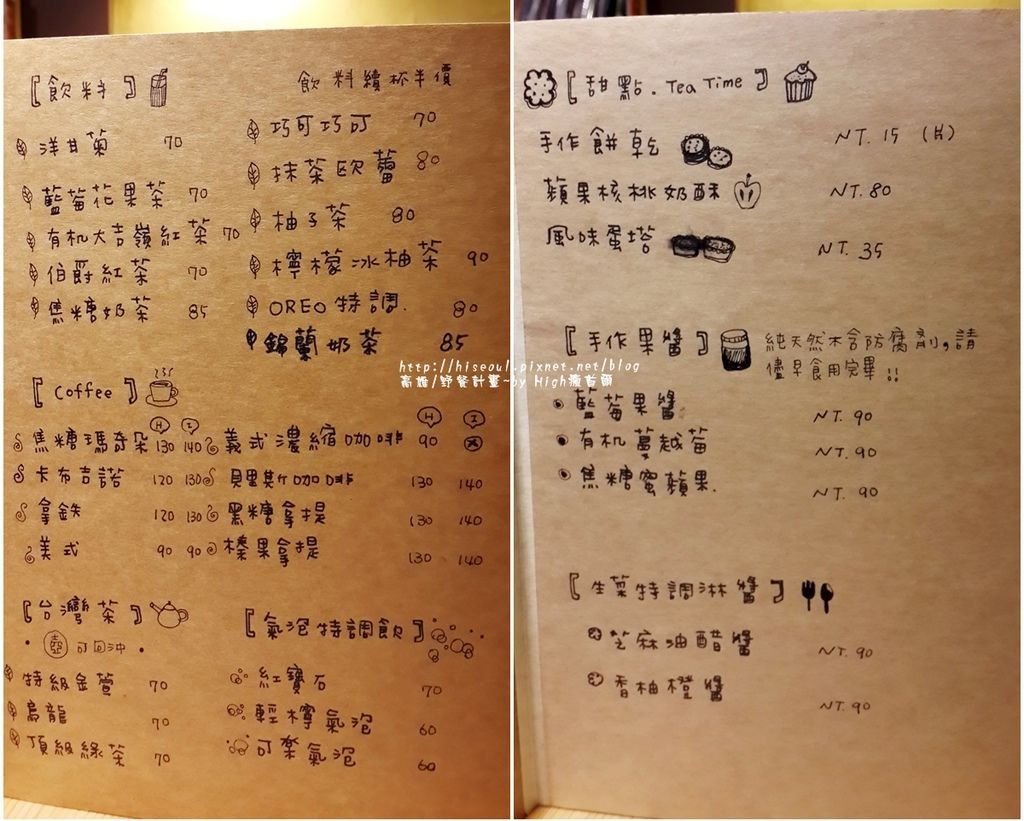 [飲料]
飲料續杯半價
洋甘菊 70
藍莓花果茶 70
有机大吉嶺紅茶 70
伯爵紅茶 70
焦糖奶茶 85
巧可巧可 70
抹茶欧蕾 80
柚子茶 80
檸檬冰柚茶 90
OREO特調. 80
錦蘭奶茶 85
[Coffee]
H I
焦糖瑪奇朵 130 140
卡布吉諾 120 130
拿鉄 120 130
美式 90 90
H I
義式濃縮咖啡 90
貝里斯咖啡 130 140
黑糖拿提 130 140
榛果拿提 130 140
[台灣茶]
• 壺 可回沖 •
特級金萱 70
烏龍 70
頂級綠茶 70
[氣泡特調飲]
紅寶石 70
輕檸氣泡 60
可楽氣泡 60
[甜點. Tea Time]
手作餅乾 NT. 15 (片)
蘋果核桃奶酥 NT. 80
風味蛋塔 NT. 35
[手作果醬]
純天然不含防腐劑,請
儘早食用完畢!!
藍莓果醬 NT. 90
有机蔓越莓 NT. 90
焦糖蜜蘋果. NT. 90
[生菜特調淋醬]
芝麻油醋醬 NT. 90
香柚橙醬 NT. 90
http://hiseoul.pixnet.net/blog
高雄/野餐計畫~by High瘋首爾